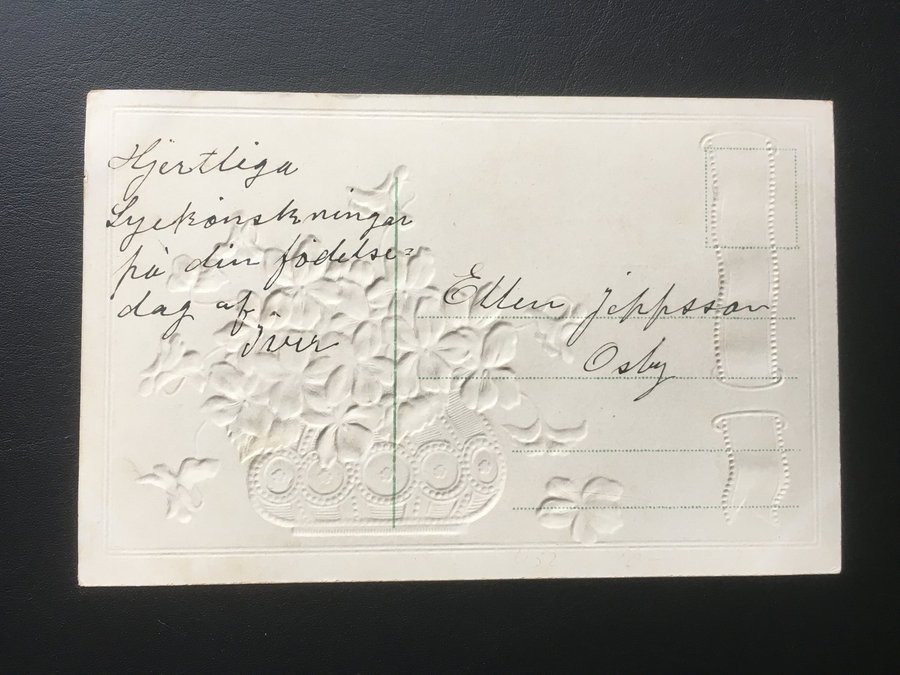 Hjertliga
Lyckönskningar
på din födelse=
dag af
Iver
Ellen Jeppsson
Osby